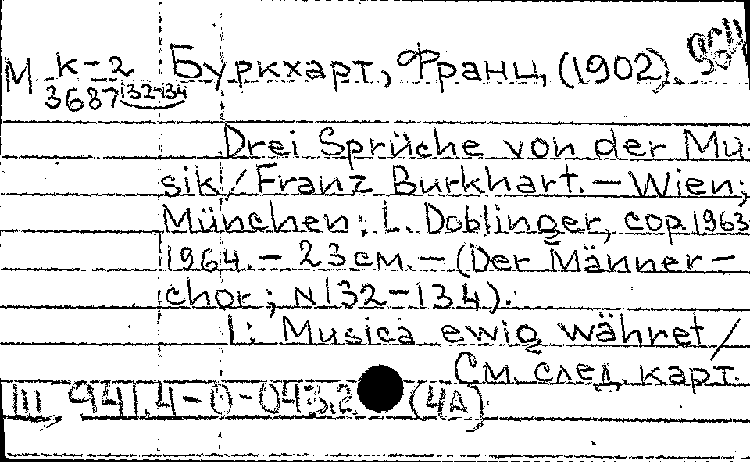 М К-2 Буркхарт, Франц, (1902).
3687 132-134
Drei Sprüche von der Mu-
sik / Franz Burkhart. — Wien;
München: L. Doblinger, cop. 1963
1964. — 23 см. — (Der Männer-
chor; N 132-134).
1: Musica ewig währet /
См. след. карт.
III 941.4-0-043.2 (4А)